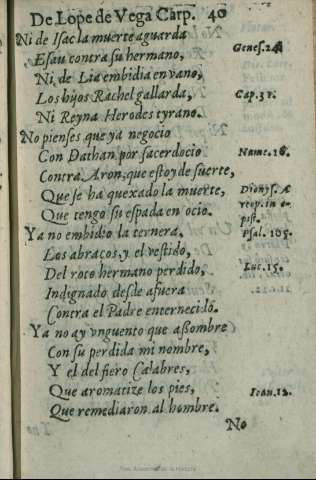 De Lope de Vega Carp. 40
Ni de Isac la muerte aguarda
Esau contra su hermano,
Genes. 24.
Ni de Lia embidia en vano,
Los hijos Rachel gallarda,
Cap. 31.
Ni Reyna Herodes tyrano.
No pienses que ya negocio
Con Dathan por sacerdocio
Nume. 16.
Contra Aron, que estoy de suerte,
Que se ha quexado la muerte,
Dionys. A
Que tengo su espada en ocio.
reop. in e-
pist.
Ya no embidio la ternera,
Psal. 105.
Los abraços, y el vestido,
Del roto hermano perdido,
Luc. 15.
Indignado desde afuera
Contra el Padre enternecido.
Ya no ay vnguento que assombre
Con su perdida mi nombre,
Y el del fiero Calabres,
Que aromatize los pies,
Ioan. 12.
Que remediaron al hombre.
No